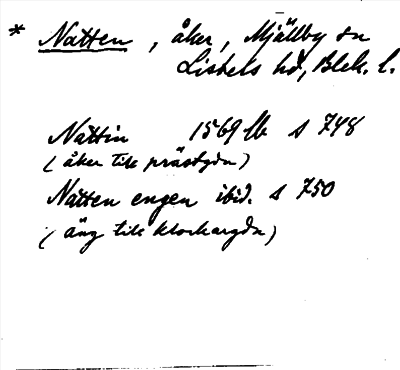 * Natten, åker, Mjällby sn
Listers hd, Blek. l.
Nattin 1569 lb s 748
(åker till prästgdn)
Natten engen ibid. s 750
(äng till klockargdn)